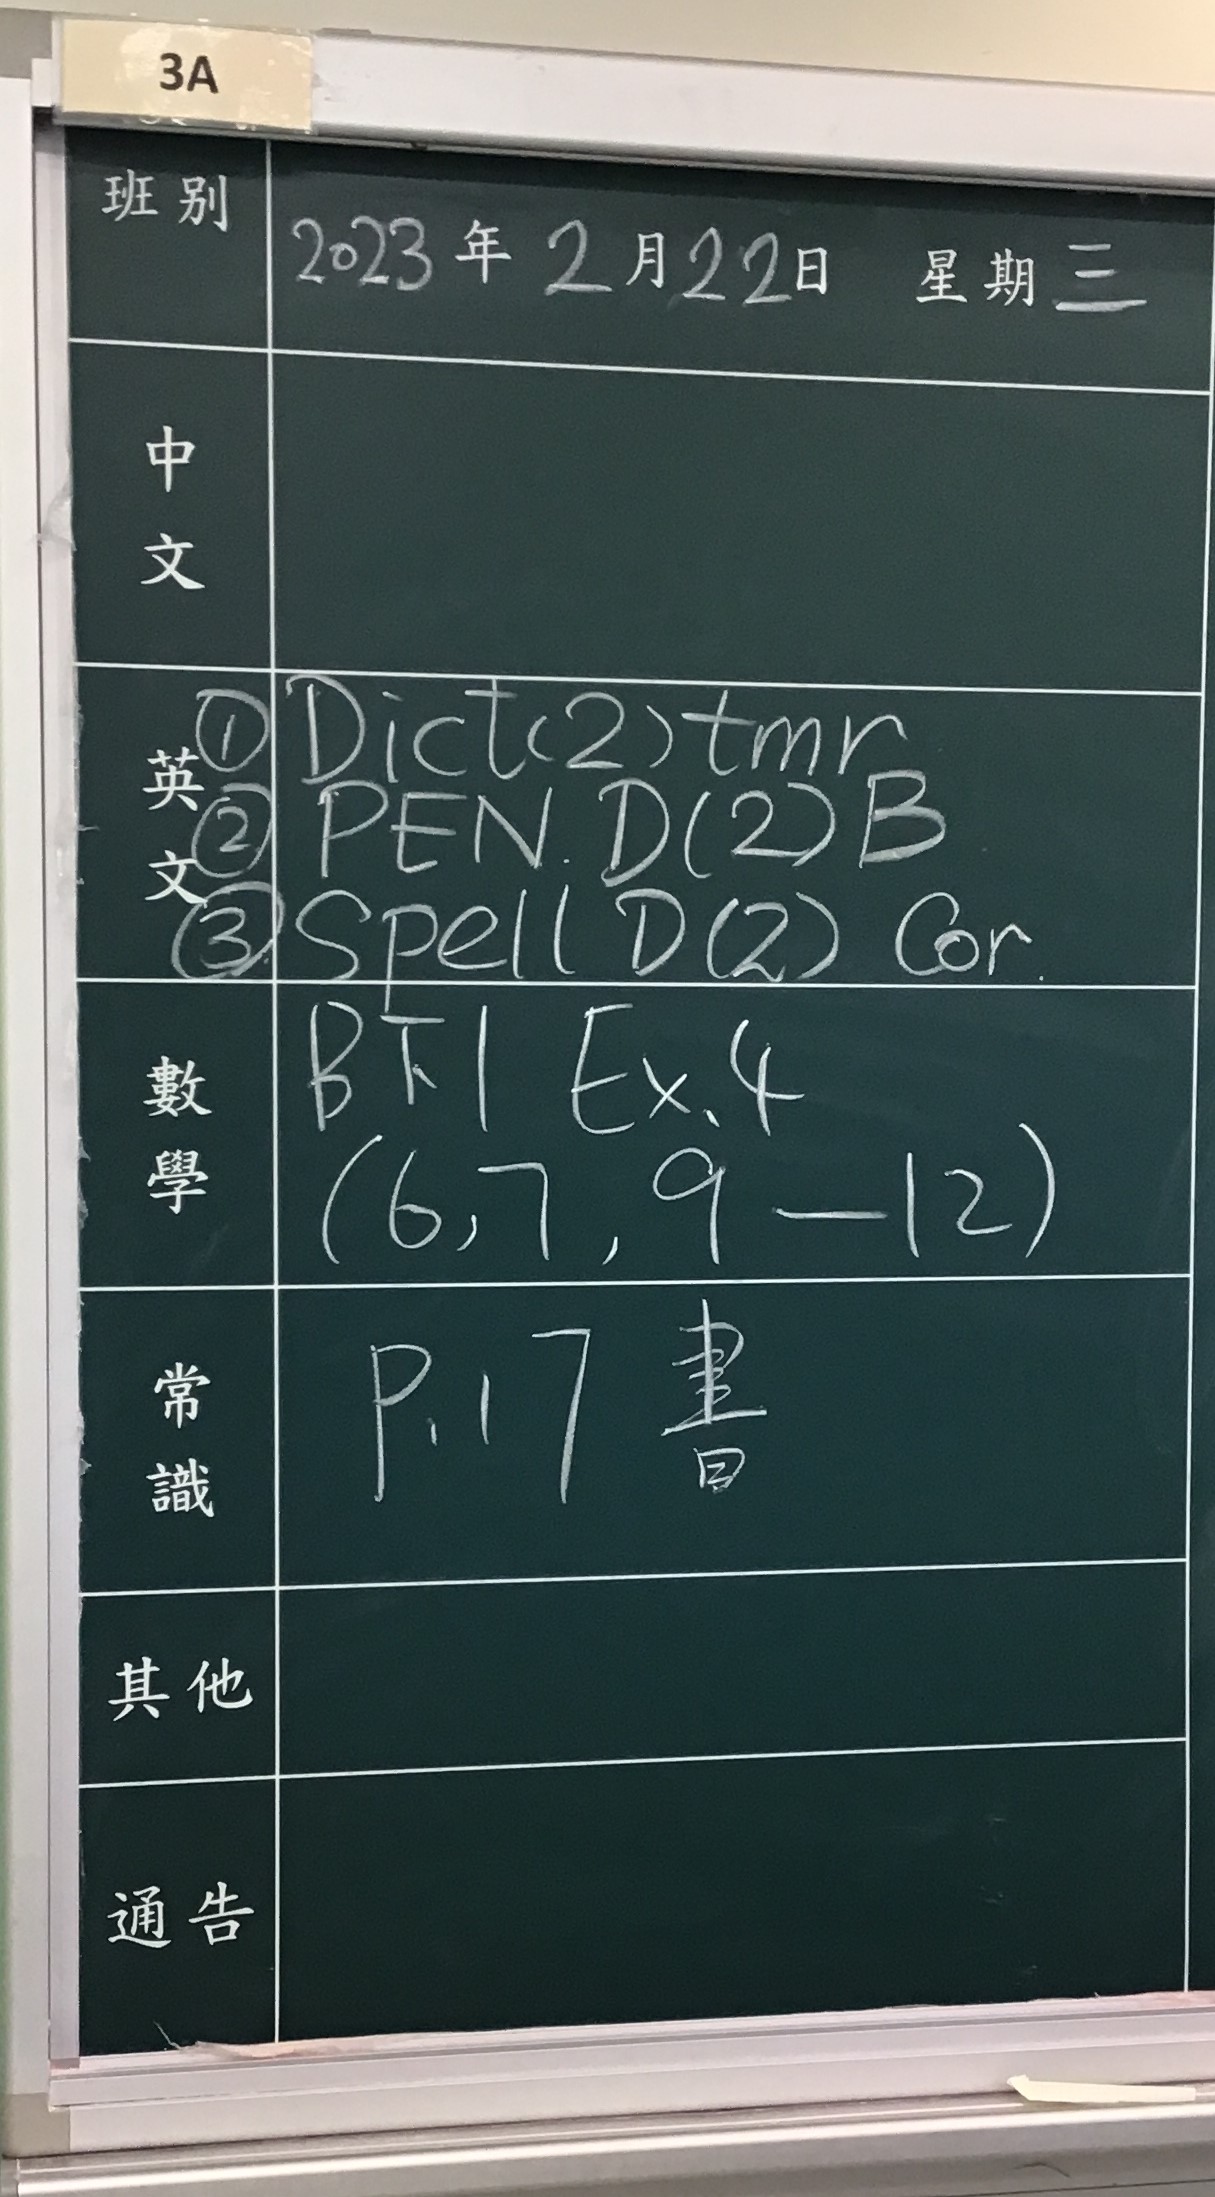 3A
班別
2023年2月22日 星期三
中文
英文
① Dict(2) tmr
② PEN. D(2) B
③ Spell D(2) Cor.
數學
B下1 Ex.4
(6,7,9—12)
常識
P.17 書
其他
通告